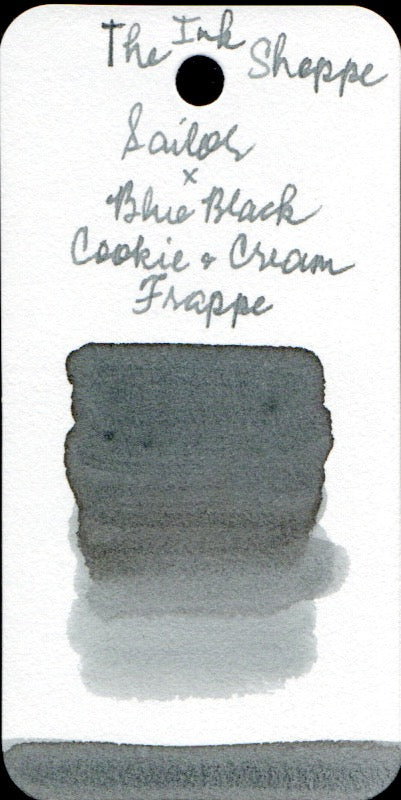 The Ink Shoppe
Sailor
x
Blue Black
Cookie & Cream
Frappe